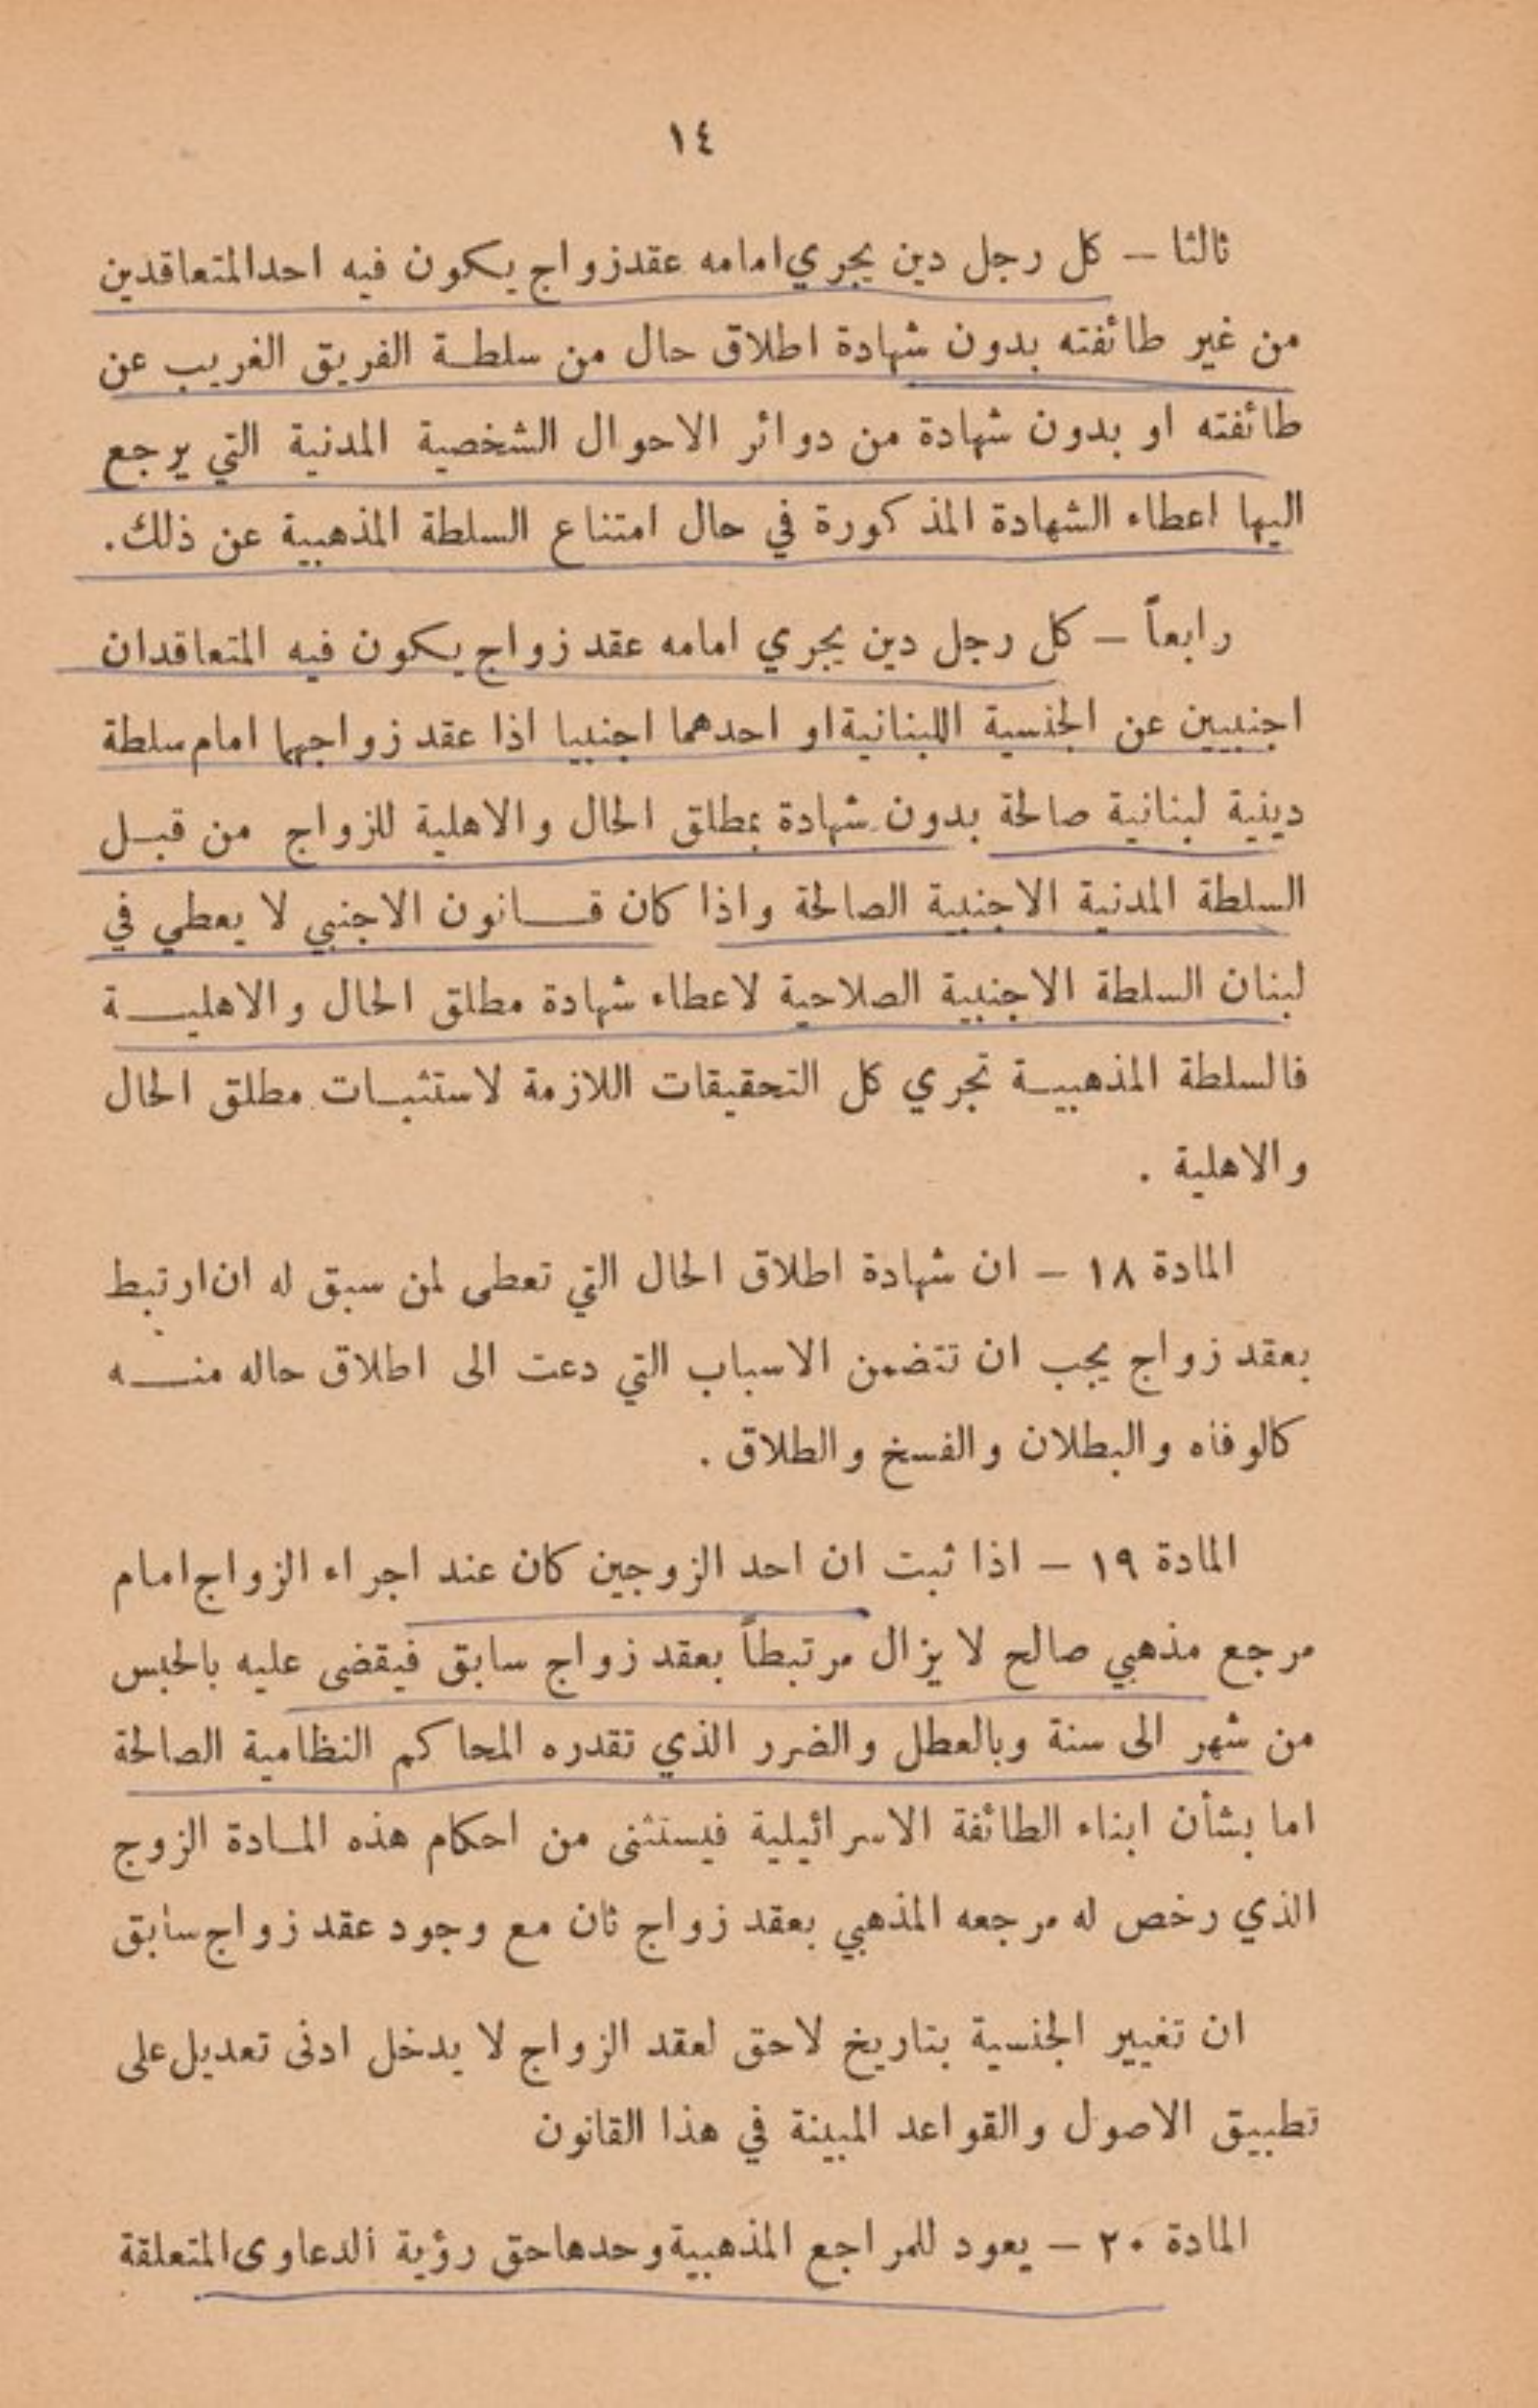 ١٤
ثالثا — كل رجل دين يجري امامه عقد زواج يكون فيه احد المتعاقدين
من غير طائفته بدون شهادة اطلاق حال من سلطة الفريق الغريب عن
طائفته او بدون شهادة من دوائر الاحوال الشخصية المدنية التي يرجع
اليها اعطاء الشهادة المذكورة في حال امتناع السلطة المذهبية عن ذلك.
رابعاً — كل رجل دين يجري امامه عقد زواج يكون فيه المتعاقدان
اجنبيين عن الجنسية اللبنانية او احدهما اجنبيا اذا عقد زواجهما امام سلطة
دينية لبنانية صالحة بدون شهادة بمطلق الحال والاهلية للزواج من قبل
السلطة المدنية الاجنبية الصالحة واذا كان قانون الاجنبي لا يعطي في
لبنان السلطة الاجنبية الصلاحية لاعطاء شهادة مطلق الحال والاهلية
فالسلطة المذهبية تجري كل التحقيقات اللازمة لاستثبات مطلق الحال
والاهلية .
المادة ١٨ — ان شهادة اطلاق الحال التي تعطى لمن سبق له ان ارتبط
بعقد زواج يجب ان تتضمن الاسباب التي دعت الى اطلاق حاله منه
كالوفاه والبطلان والفسخ والطلاق .
المادة ١٩ — اذا ثبت ان احد الزوجين كان عند اجراء الزواج امام
مرجع مذهبي صالح لا يزال مرتبطاً بعقد زواج سابق فيقضى عليه بالحبس
من شهر الى سنة وبالعطل والضرر الذي تقدره المحاكم النظامية الصالحة
اما بشأن ابناء الطائفة الاسرائيلية فيستثنى من احكام هذه المادة الزوج
الذي رخص له مرجعه المذهبي بعقد زواج ثان مع وجود عقد زواج سابق
ان تغيير الجنسية بتاريخ لاحق لعقد الزواج لا يدخل ادنى تعديل على
تطبيق الاصول والقواعد المبينة في هذا القانون
المادة ٢٠ — يعود للمراجع المذهبية وحدها حق رؤية الدعاوى المتعلقة